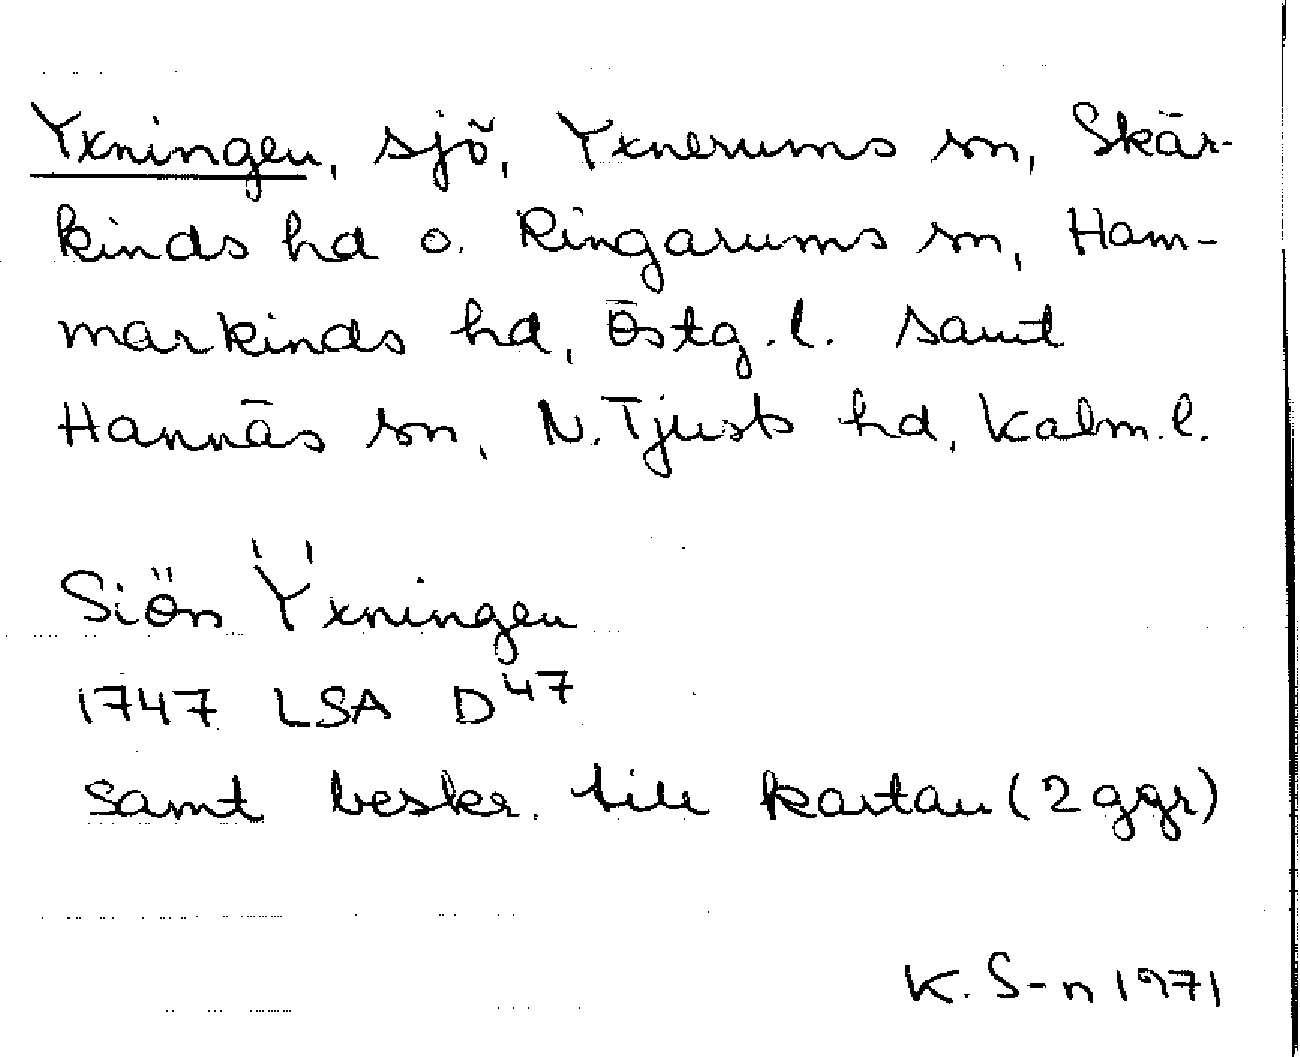 Yxningen, sjö, Yxnerums sn, Skär-
kinds hd o. Ringarums sn, Ham-
markinds hd, Östg. l. samt
Hannäs sn, N. Tjusts hd, Kalm. l.
Siön Ÿxningen
1747 LSA D47
samt beskr. till kartan (2 ggr)
K. S-n 1971